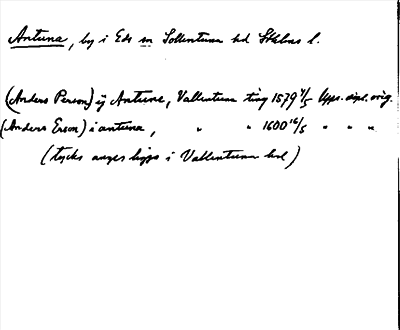 Antuna, by i Eds sn Sollentuna hd Sthlms l.
(Anders Person) ij Antuna, Vallentuna ting 1579 4/5 Upps. dipl. orig.
(Anders Erson) i antuna, " " 1600 16/5 " " "
(tycks anges ligga i Vallentuna hd)